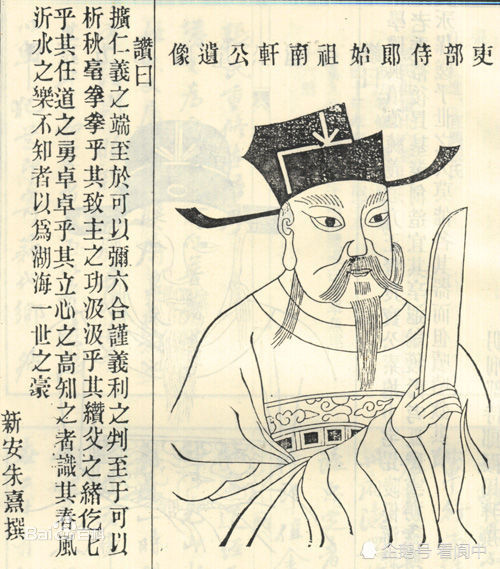 吏部侍郎始祖南軒公遺像
讚曰
擴仁義之端至於可以彌六合謹義利之判至于可以
析秋毫拳拳乎其致主之功汲汲乎其纘父之緒仡七
乎其任道之勇卓卓乎其立心之高知之者識其春風
沂水之樂不知者以爲湖海一世之豪
新安朱熹撰
企鹅号 看闻中